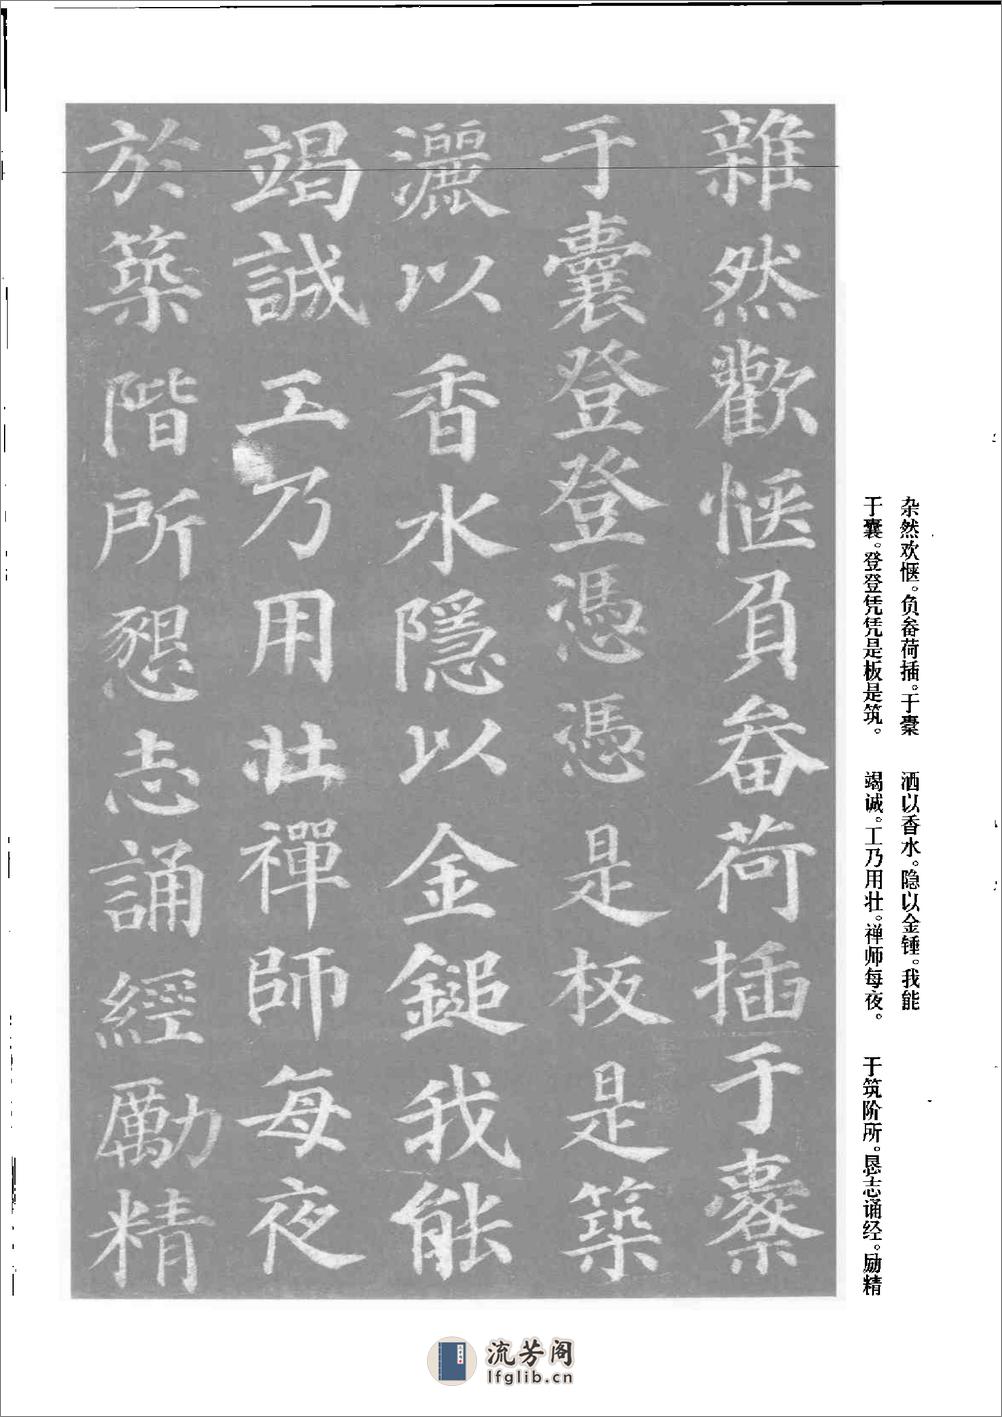 雜然歡惬負畚荷插于橐
于囊登登憑憑是板是築
灑以香水隱以金鎚我能
竭誠工乃用壯禪師每夜
於築階所懇志誦經勵精
杂然欢惬。负畚荷插。于橐
于囊。登登凭凭是板是筑。
洒以香水。隐以金锤。我能
竭诚。工乃用壮。禅师每夜。
于筑阶所。恳志诵经。励精
流芳阁
lfglib.cn